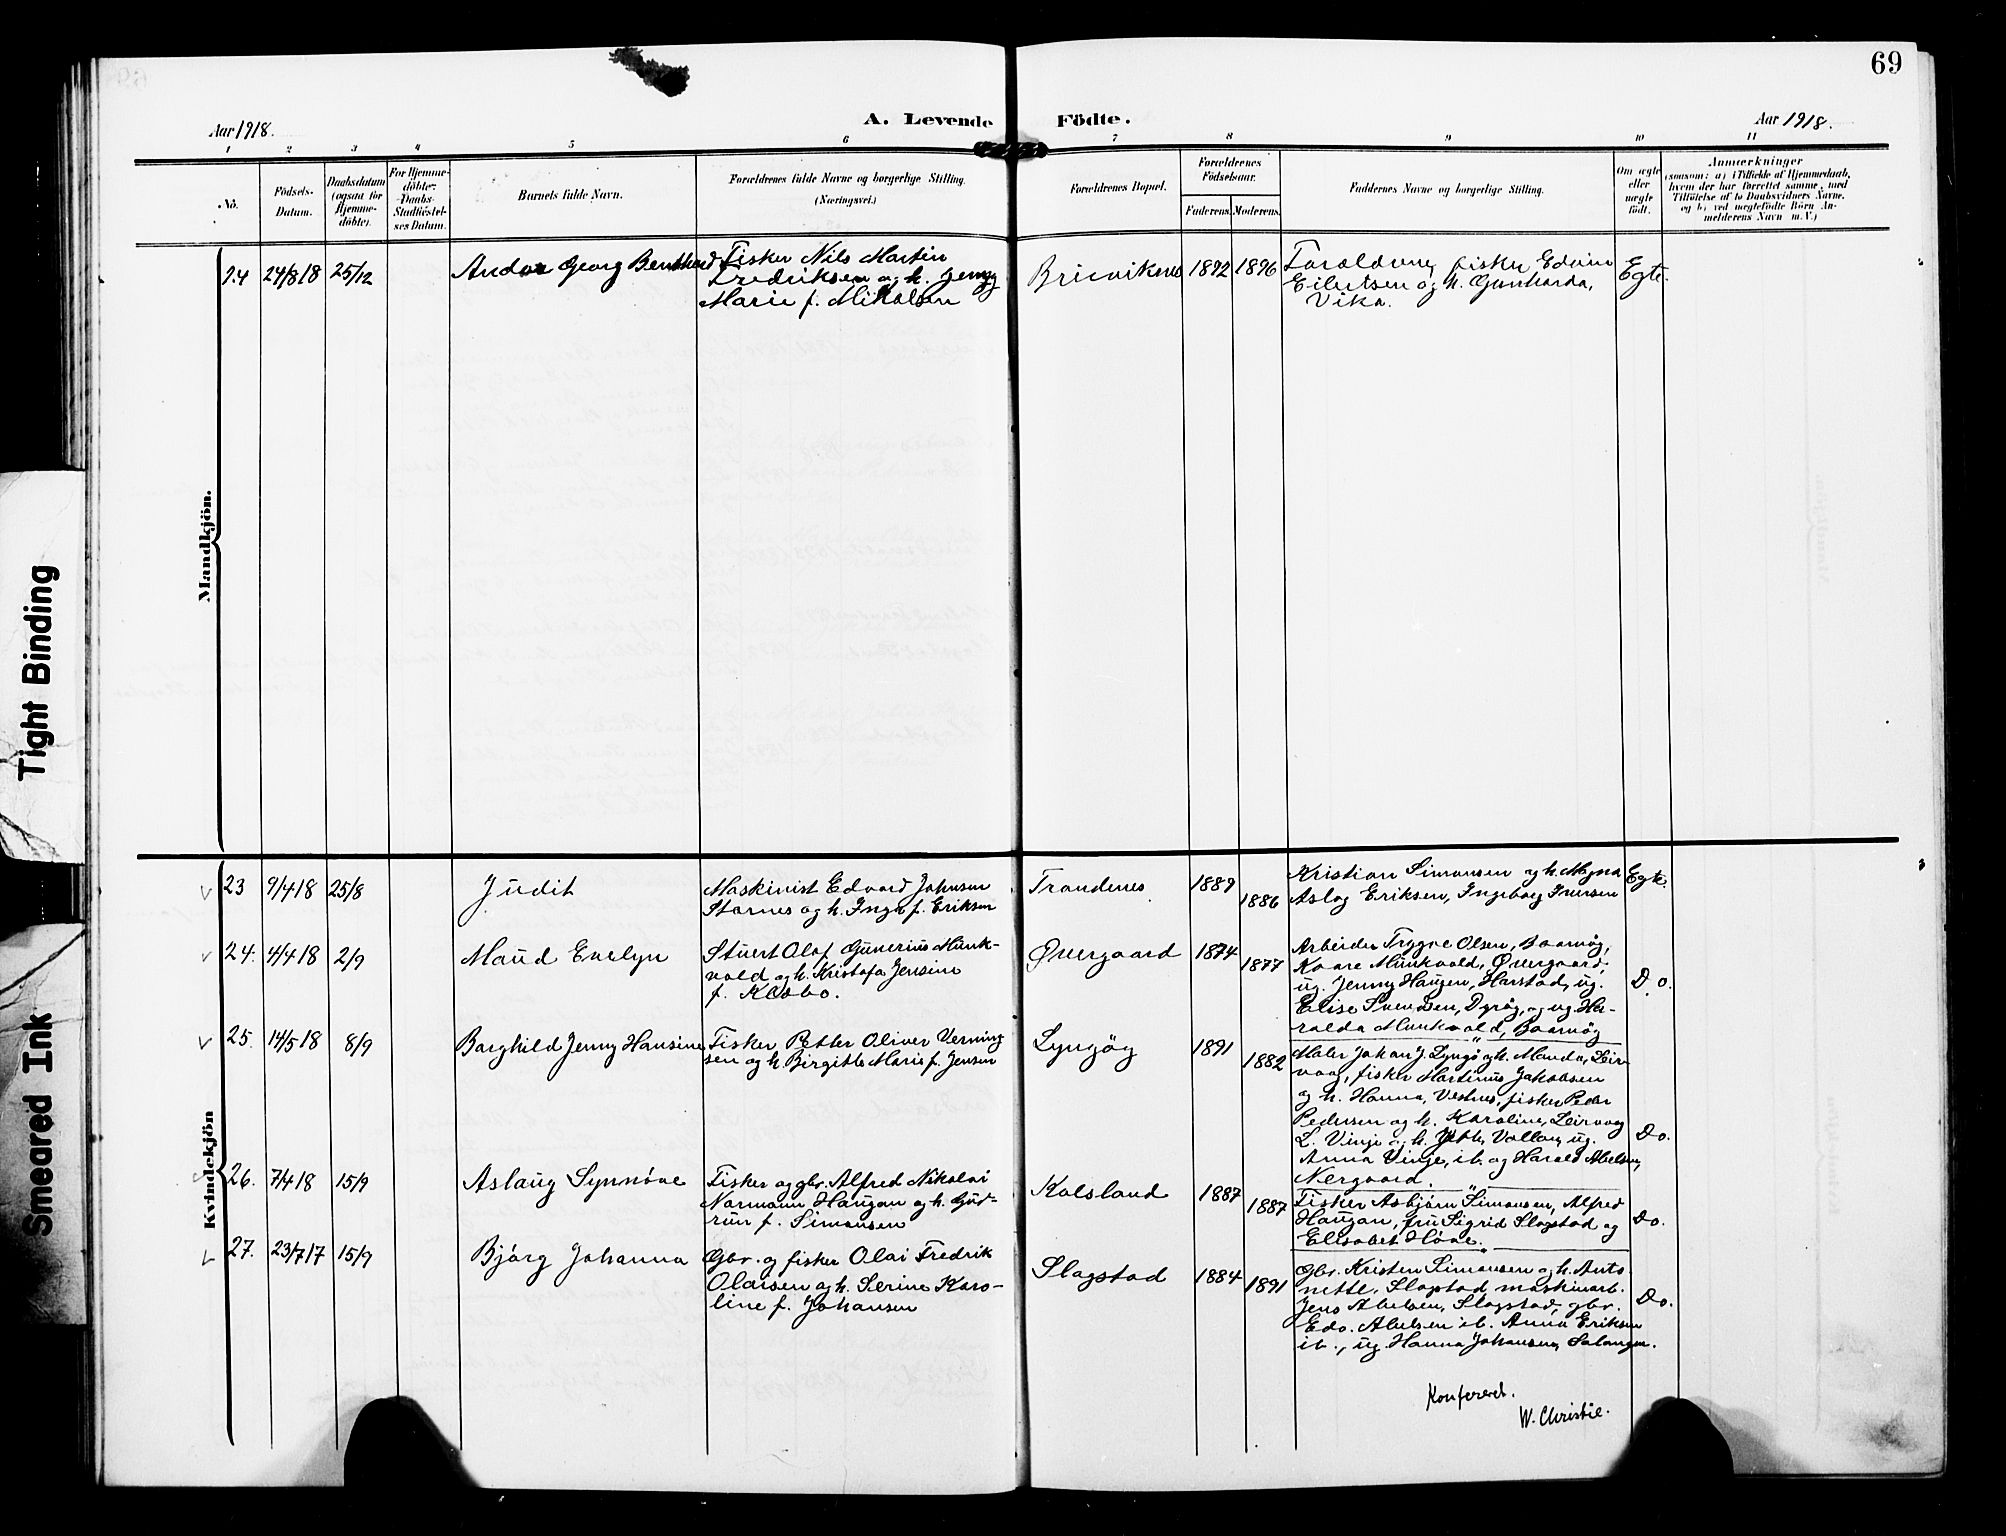 69
Aar 1918.
A. Levende Födte.
Aar 1918.
1 2 3 4 5 6 7 8 9 10 11
No.
Födsels-
Datum.
Daabsdatum
(ogsaa for
Hjemme-
döbte).
For Hjemme-
döbte:
Daabs-
Stadfæstel-
ses Datum.
Barnets fulde Navn.
Forældrenes fulde Navne og borgerlige Stilling.
(Næringsvei.)
Forældrenes Bopæl.
Forældrenes
Födselsaar.
Faderens. Moderens.
Faddernes Navne og borgerlige Stilling.
Om ægte
eller
uægte
födt.
Anmærkninger
(saasom: a) i Tilfælde af Hjemmedaab,
hvem der har forrettet samme, med
Tilföielse af to Daabsvidners Navne,
og b) ved uægtefödte Börn An-
melderens Navn m. V.)
Mandkjön.
24 24/8 18 25/12
Georg
Fisker Nils Martin
Fredriksen og h. Jenny
Marie f. Mikalsen
1892 1896
Forældrene, fisker Edvin
Eilertsen og h.
Vika.
Egte.
Kvindekjön
23 9/4 18 25/8
Judit
Maskinist Edvard Johnsen
Stornes og h. Inga f. Eriksen
Trondenes
1889
1886
Kristian Simonsen og h. Magna
Aslag Eriksen, Ingeborg Iversen
Egte.
24. 4/4 18 2/9
Maud Evelyn
Stuert Olaf Gunerius Munk-
vold og h. Kristofa Jensine
f.
Øvergaard
1874
1877
Arbeider Trygve Olsen,
Kaare Munkvold, Øvergaard,
ug. Jenny Haugen, Harstad, ug.
Elise Svendsen, Dyrøy, og ug. Ha-
ralda Munkvold,
Do.
25. 14/5 18 8/9
Borghild Jenny Hansine
Fisker Petter Oliver Verning-
sen og h. Birgitte Marie f. Jensen
Lyngøy
1891
1882
Maler Johan J. Lyngø og h. Manda, Leir-
vaag, fisker Martinus Jakobsen
og h. Hanna, Vestnes, fisker Peder
Pedersen og h. Karoline, Leirvaag
L. Vinje og h. ug.
Anna Vinje, ib. og Harald Abelsen,
Nergaard.
Do.
26. 7/4 18 15/9
Aslaug Synnöve
Fisker og gbr. Alfred Nikolai
Normann Haugan og h. Gud-
run f. Simonsen
Kalsland
1887
1887
Fisker Asbjørn Simonsen, Alfred
Haugan, fru Sigrid Slagstad og
Elisabet
Do.
27. 23/7 17 15/9
Bjørg Johanna
Gbr. og fisker Olai Fredrik
Olaisen og h. Serine Karo-
line f. Johansen
Slagstad
1884
1891
Gbr. Kristen Simonsen og h. Anto-
nette, Slagstad, maskinarb.
Jens Abelsen, Slagstad, gbr.
Edv. Abelsen ib. Anna Eriksen
ib., ug. Hanna Johansen, Salangen.
Do.
Konfereret.
W. Christie.
Tight Binding
Smeared Ink